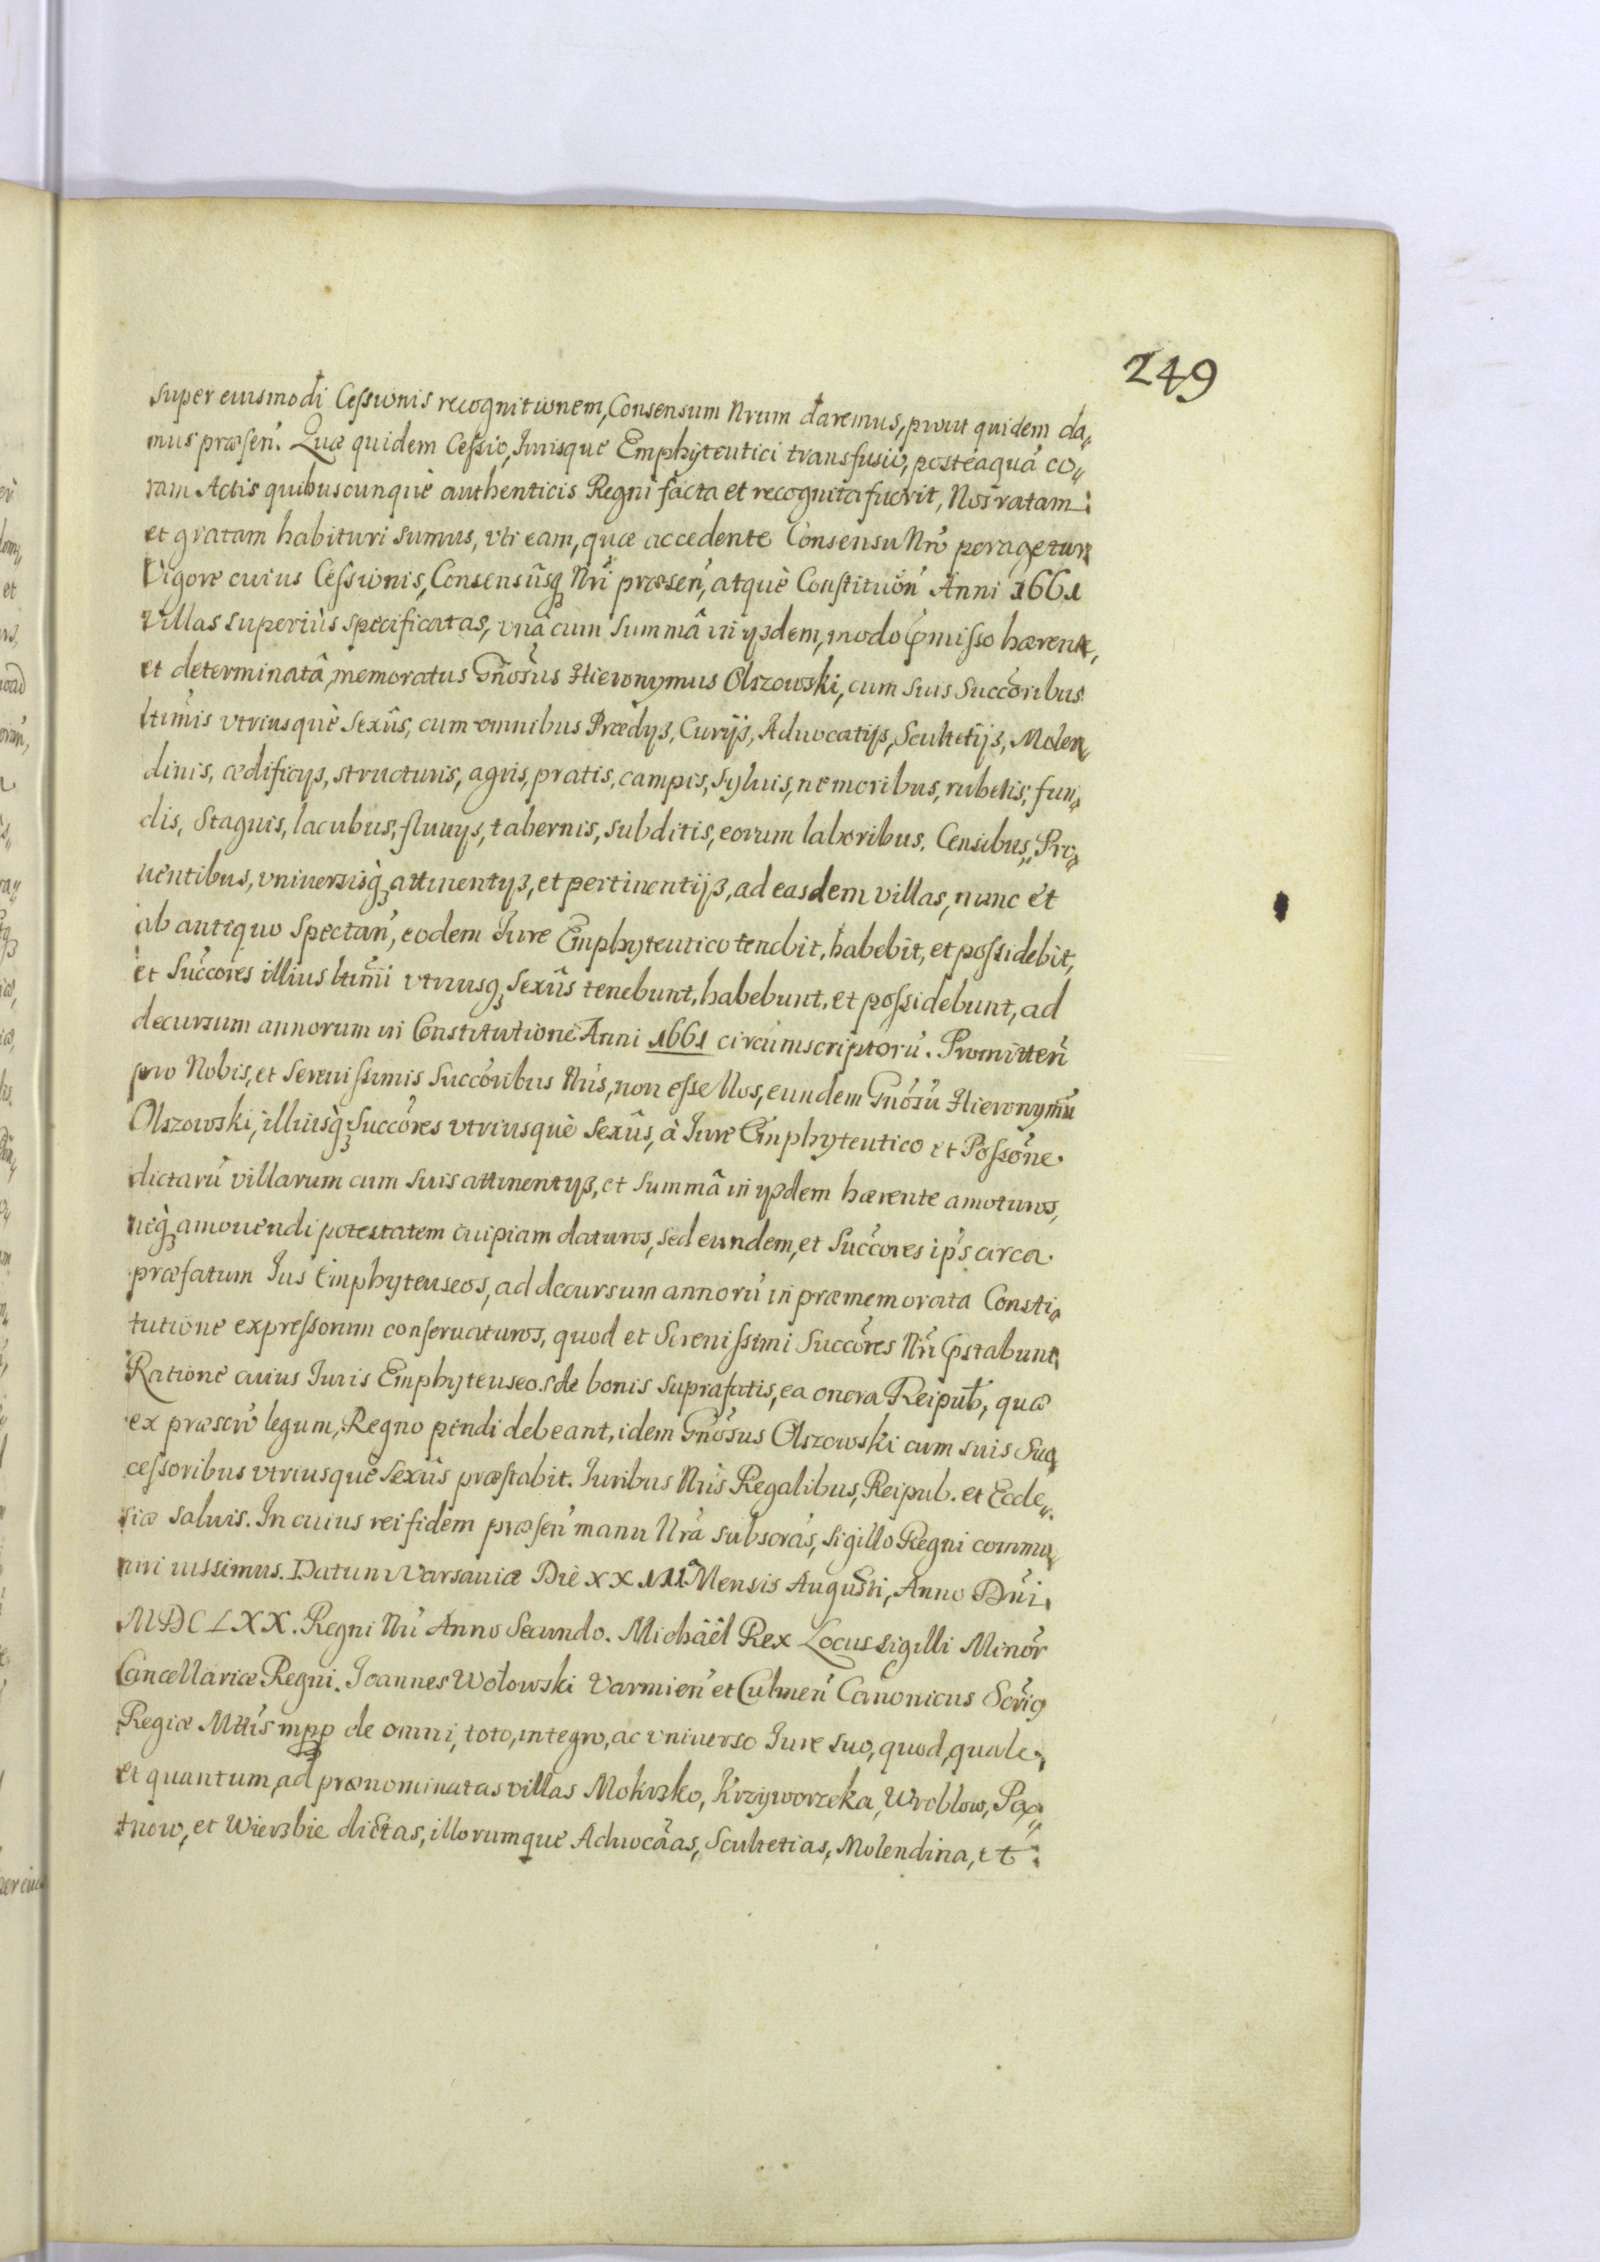 249
super eiusmodi Cessionis recognitionem, Consensum Nrum daremus, prout quidem da„
mus præsen̄. Quæ quidem Cessio, Iurisque Emphyteutici transfusio, posteaquā co„
ram Actis quibuscunquè authenticis Regni facta et recognita fuerit, Nos ratam
et gratam habituri sumus, vti eam, quæ accedente Consensu Nrō peragetur.
Vigore cuius Cessionis, Consensûsq̢ Nrī præsen̄, atquè Constituōn̄ Anni 1661
villas superiùs specificatas, vnâ cum Summâ in ijsdem, modo p̄misso hærente,
et determinatâ, memoratus Gn̄osus Hieronymus Olszowski, cum suis Succōribus
ltīmis vtriusquè Sexûs, cum omnibus Prædijs, Curijs, Aduocatijs, Scultetijs, Molen„
dinis, ædificijs, structuris, agris, pratis, campis, syluis, nemoribus, rubetis, fun„
dis, Stagnis, lacubus, fluuijs, tabernis, subditis, eorum laboribus, Censibus, Pro„
uentibus, vniuersisq̢ attinentijs, et pertinentijs, ad easdem villas, nunc et
ab antiquo spectan̄, eodem Iure Emphyteutico tenebit, habebit, et possidebit,
et Succōres illius ltīmi vtriusq̢ Sexûs tenebunt, habebunt, et possidebunt, ad
decursum annorum in Constitutione Anni 1661 circumscriptorū. Promitten̄
pro Nobis, et Serenissimis Succōribus Nrīs, non esse Nos, eundem Gn̄osū Hieronymū
Olszowski, illiusq̢ Succōres vtriusquè Sexûs, à Iure Emphyteutico et Possōne
dictarū villarum cum suis attinentijs, et Summâ in ijsdem hærente amoturos,
neq̢ amouendi potestatem cuipiam daturos, sed eundem, et Succōres ip̄s circa
præfatum Ius Emphyteuseos, ad decursum annorū in præmemorata Consti„
tutione expressorum conseruaturos, quod et Serenissimi Succōres Nrī p̄stabunt.
Ratione cuius Iuris Emphyteuseos de bonis suprafatis, ea onera Reipub̄, quæ
ex præscrō legum, Regno pendi debeant, idem Gn̄osus Olszowski cum suis Suc„
cessoribus vtriusquè Sexûs præstabit. Iuribus Nrīs Regalibus, Reipub. et Eccle„
siæ saluis. In cuius rei fidem præsen̄ manu Nrā subscrās, Sigillo Regni commu„
niri iussimus. Datum Varsauiæ Die XXIII Mensis Augusti, Anno Dn̄i
MDCLXX. Regni Nrī Anno Secundo. Michäël Rex Locus sigilli Minōr
Cancellariæ Regni. Ioannes Wołowski Varmien̄ et Culmen̄ Canonicus Scrīg
Regiæ Mttīs mpp de omni, toto, integro, ac vniuerso Iure suo, quod, quale,
et quantum, ad prænominatas villas Mokrsko, Krzyworzeka, Wroblow, Pąt„
tnow, et Wierzbie dictas, illorumque Aduocāas, Scultetias, Molendina, et